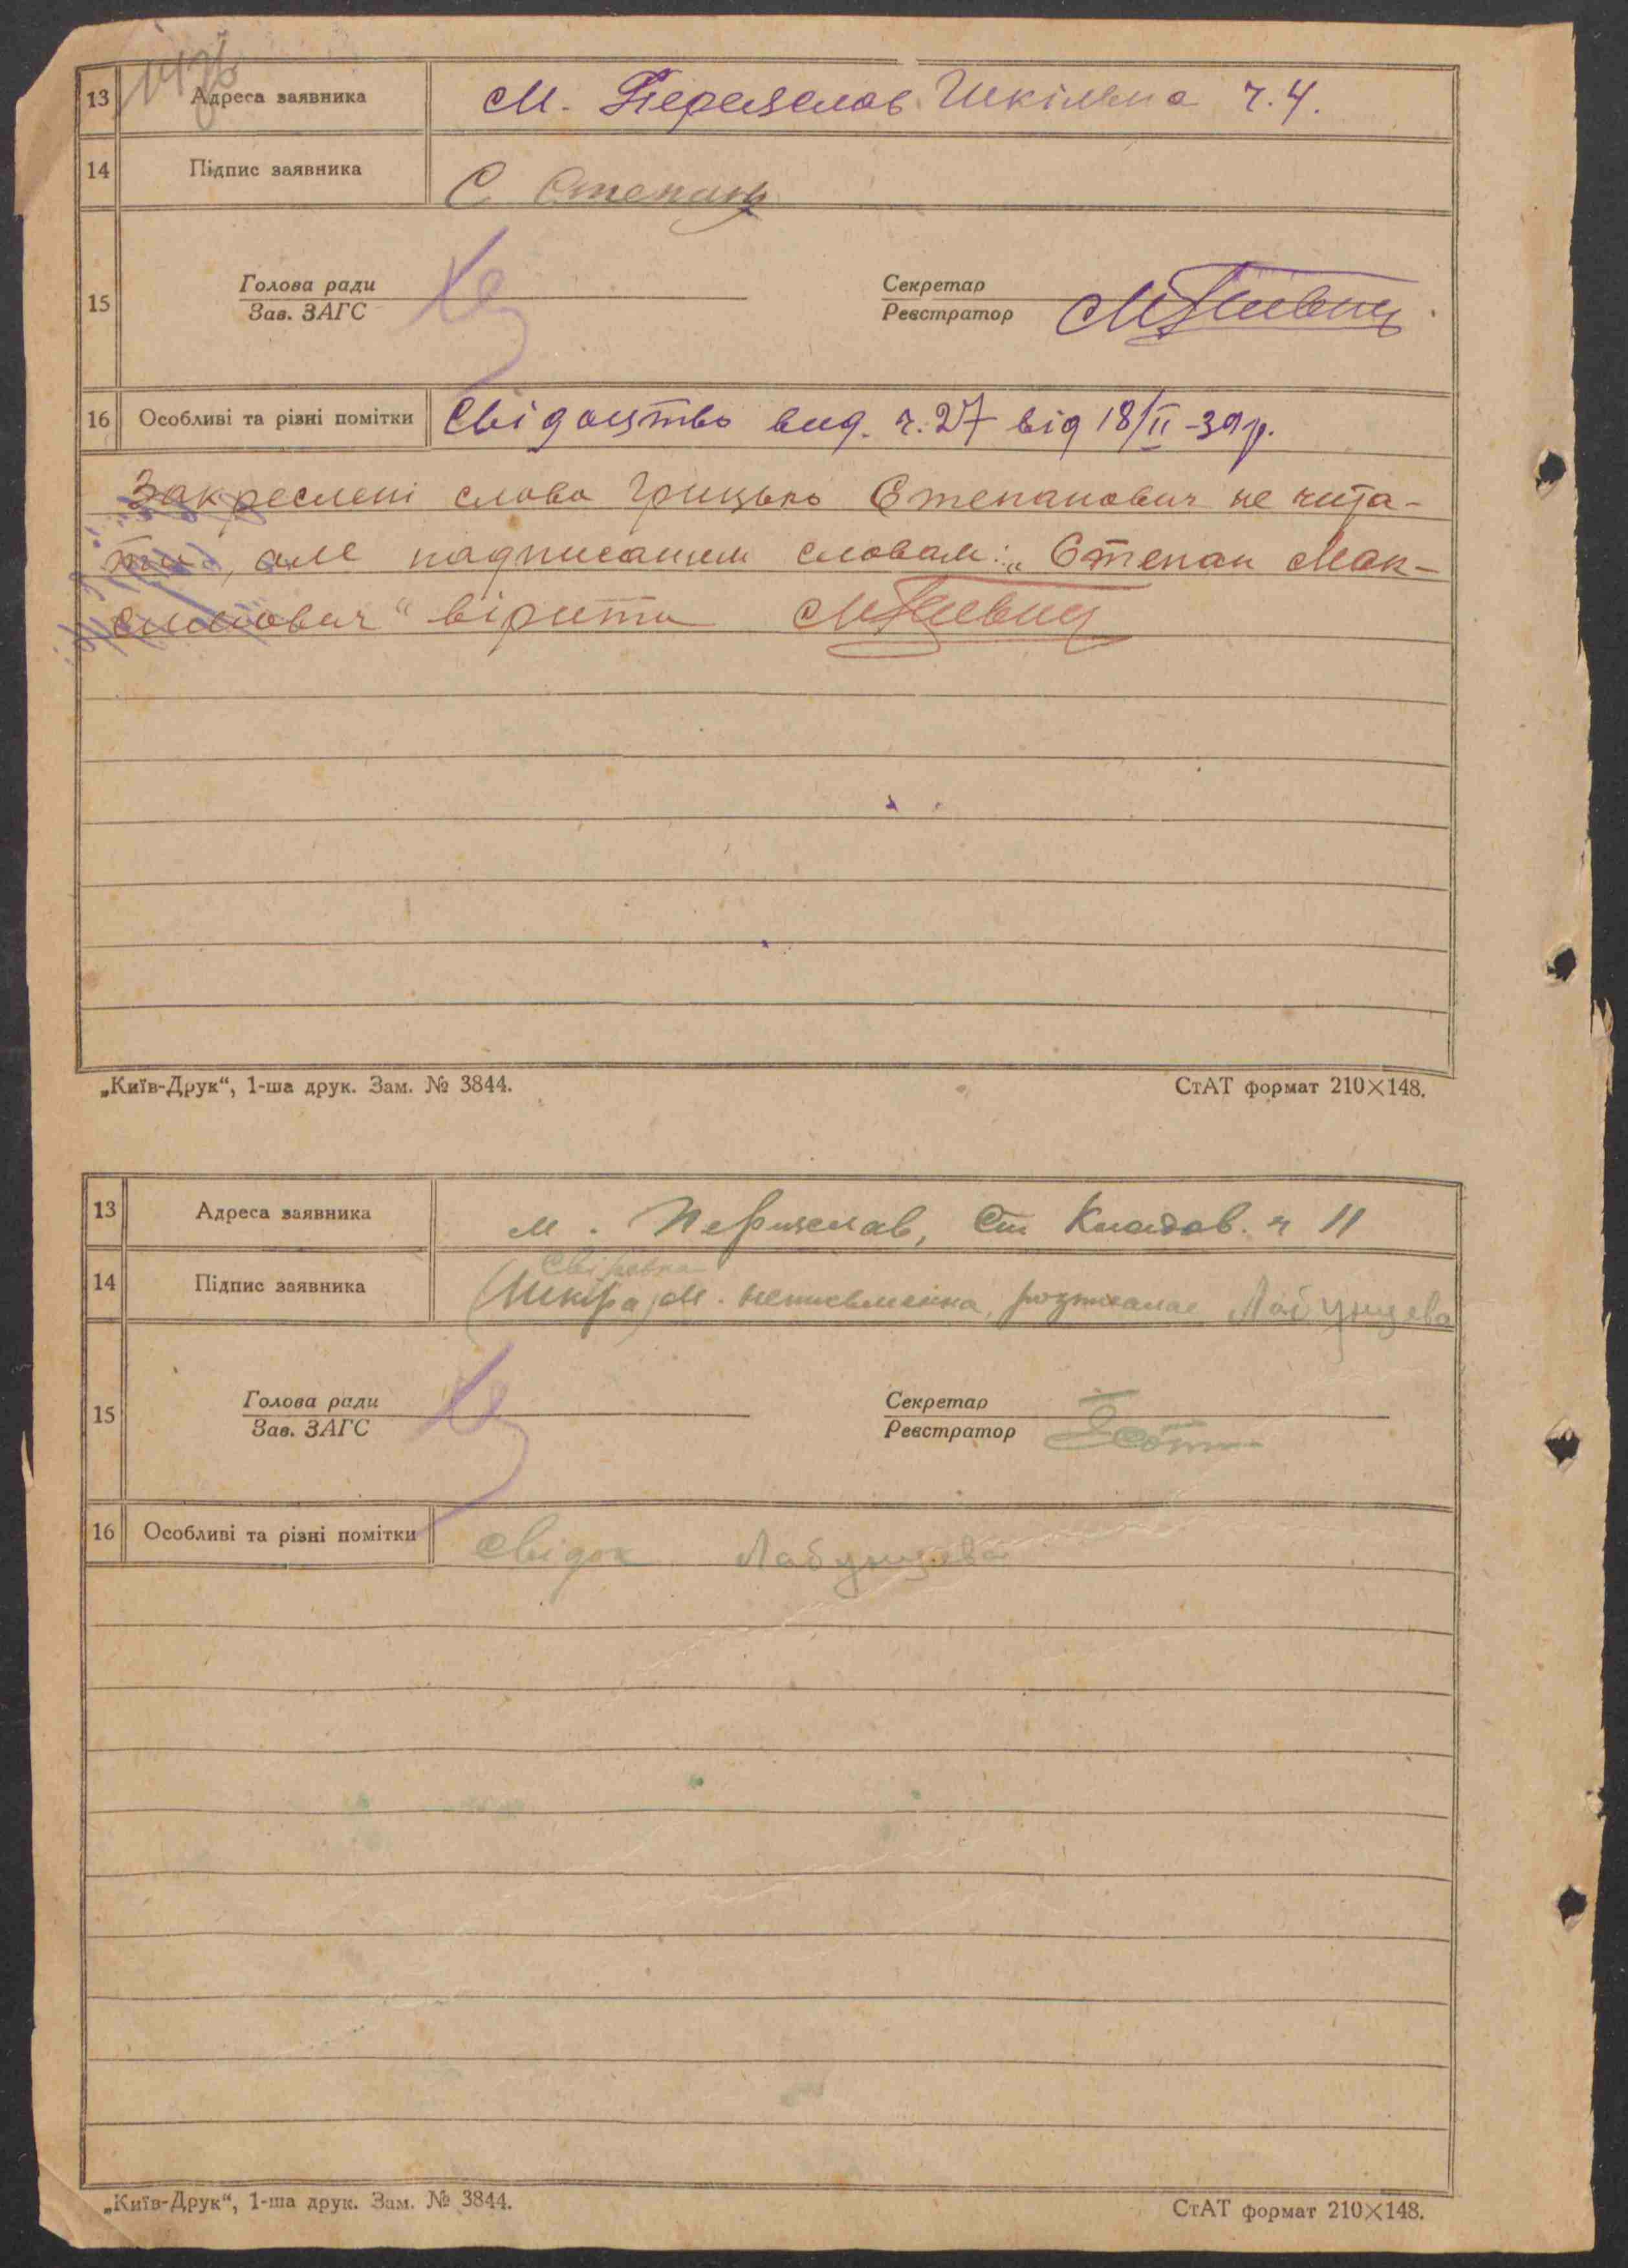 13 Адреса заявника м. Переяслав Шкільна ч. 4.
14 Підпис заявника С Степанц
15 Голова ради Секретар
Зав. ЗАГС Реєстратор
16 Особливі та різні помітки Свідоцтво вид. ч. 27 від 18/II -39р.
Закреслені слова Грицько Степанович не чита-
ти, але надписаним словам: „Степан Мак-
симович“ вірити
„Київ-Друк“, 1-ша друк. Зам. № 3844. СтАТ формат 210×148.
13 Адреса заявника м. Переяслав, Ст Кладов. ч 11
14 Підпис заявника М. неписьменна, розписалас Лабунцева
15 Голова ради Секретар
Зав. ЗАГС Реєстратор
16 Особливі та різні помітки Свідок Лабунцева
„Київ-Друк“, 1-ша друк. Зам. № 3844. СтАТ формат 210×148.